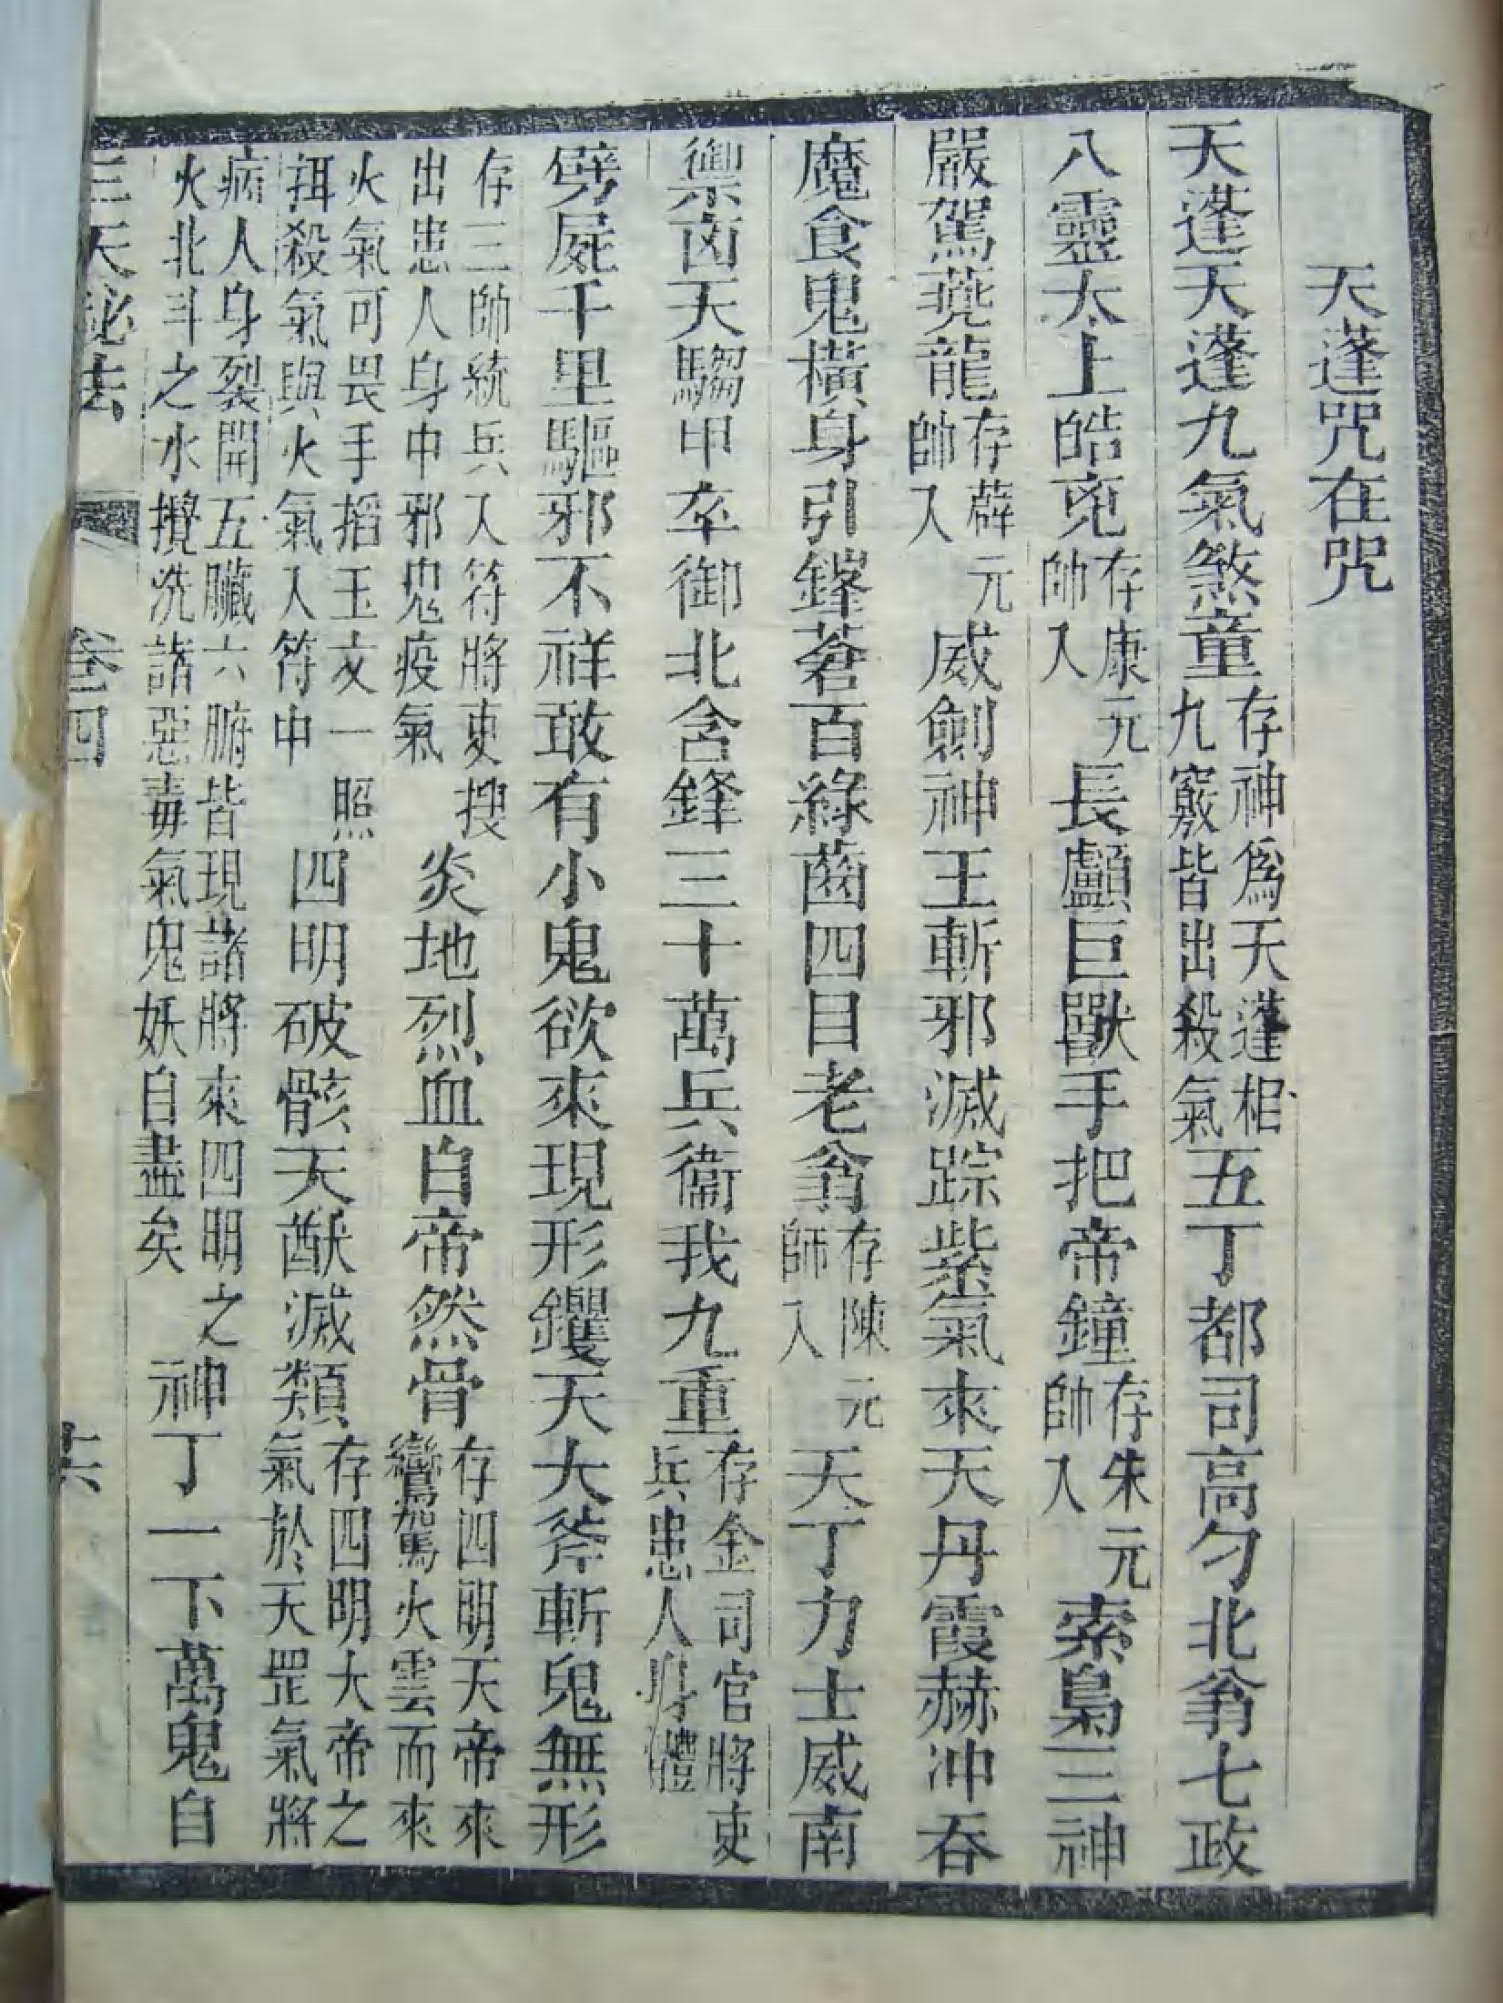 天蓬咒在咒
天蓬天蓬九氣煞童存神爲天蓬相九竅皆出殺氣五丁都司高勺北翁七政
八靈太上皓兇存康元帥入長顱巨獸手把帝鐘存朱元帥入索梟三神
嚴駕夔龍存薜元帥入威劍神王斬邪滅踪紫氣來天丹霞赫冲吞
魔食鬼橫身引鏠蒼百綠齒四目老翁存陳元帥入天丁力士威南
禦卤天騶甲卒御北含鋒三十萬兵衞我九重存金司官將吏兵患人身體
劈屍千里驅邪不祥敢有小鬼欲來現形钁天大斧斬鬼無形
存三帥統兵入符將吏搜出患人身中邪鬼疫氣炎地烈血白帝然骨存四明天帝來鸞駕火雲而來
火氣可畏手搯玉文一照弭殺氣與火氣入符中四明破骸天猷滅類存四明大帝之氣於天罡氣將
病人身裂開五臟六腑皆現諸將來四明之火北斗之水攪洗諸惡毒氣鬼妖自盡矣神丁一下萬鬼自
三天秘法 卷四